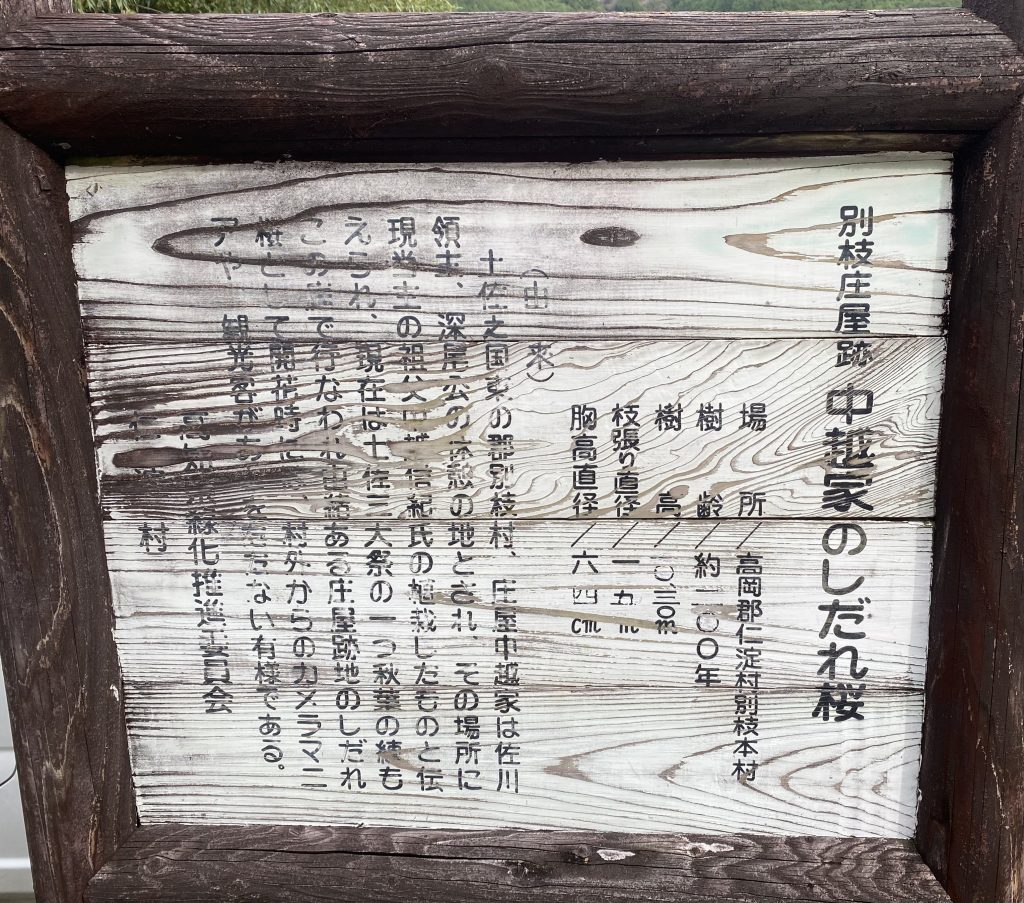 別枝庄屋跡 中越家のしだれ桜
場所/高岡郡仁淀村別枝本村
樹齢/約二〇〇年
樹高/一〇.三〇m
枝張り直径/一五m
胸高直径/六四cm
(由来)
土佐之国東の郡別枝村、庄屋中越家は佐川
領主、深尾公の休憩の地とされ、その場所に
現当主の祖父中越信紀氏の植栽したものと伝
えられ、現在は土佐三大祭の一つ秋葉の練も
この庭で行なわれ由緒ある庄屋跡地のしだれ
桜として開花時に、村外からのカメラマニ
アや観光客があとを絶たない有様である。
緑化推進委員会
村